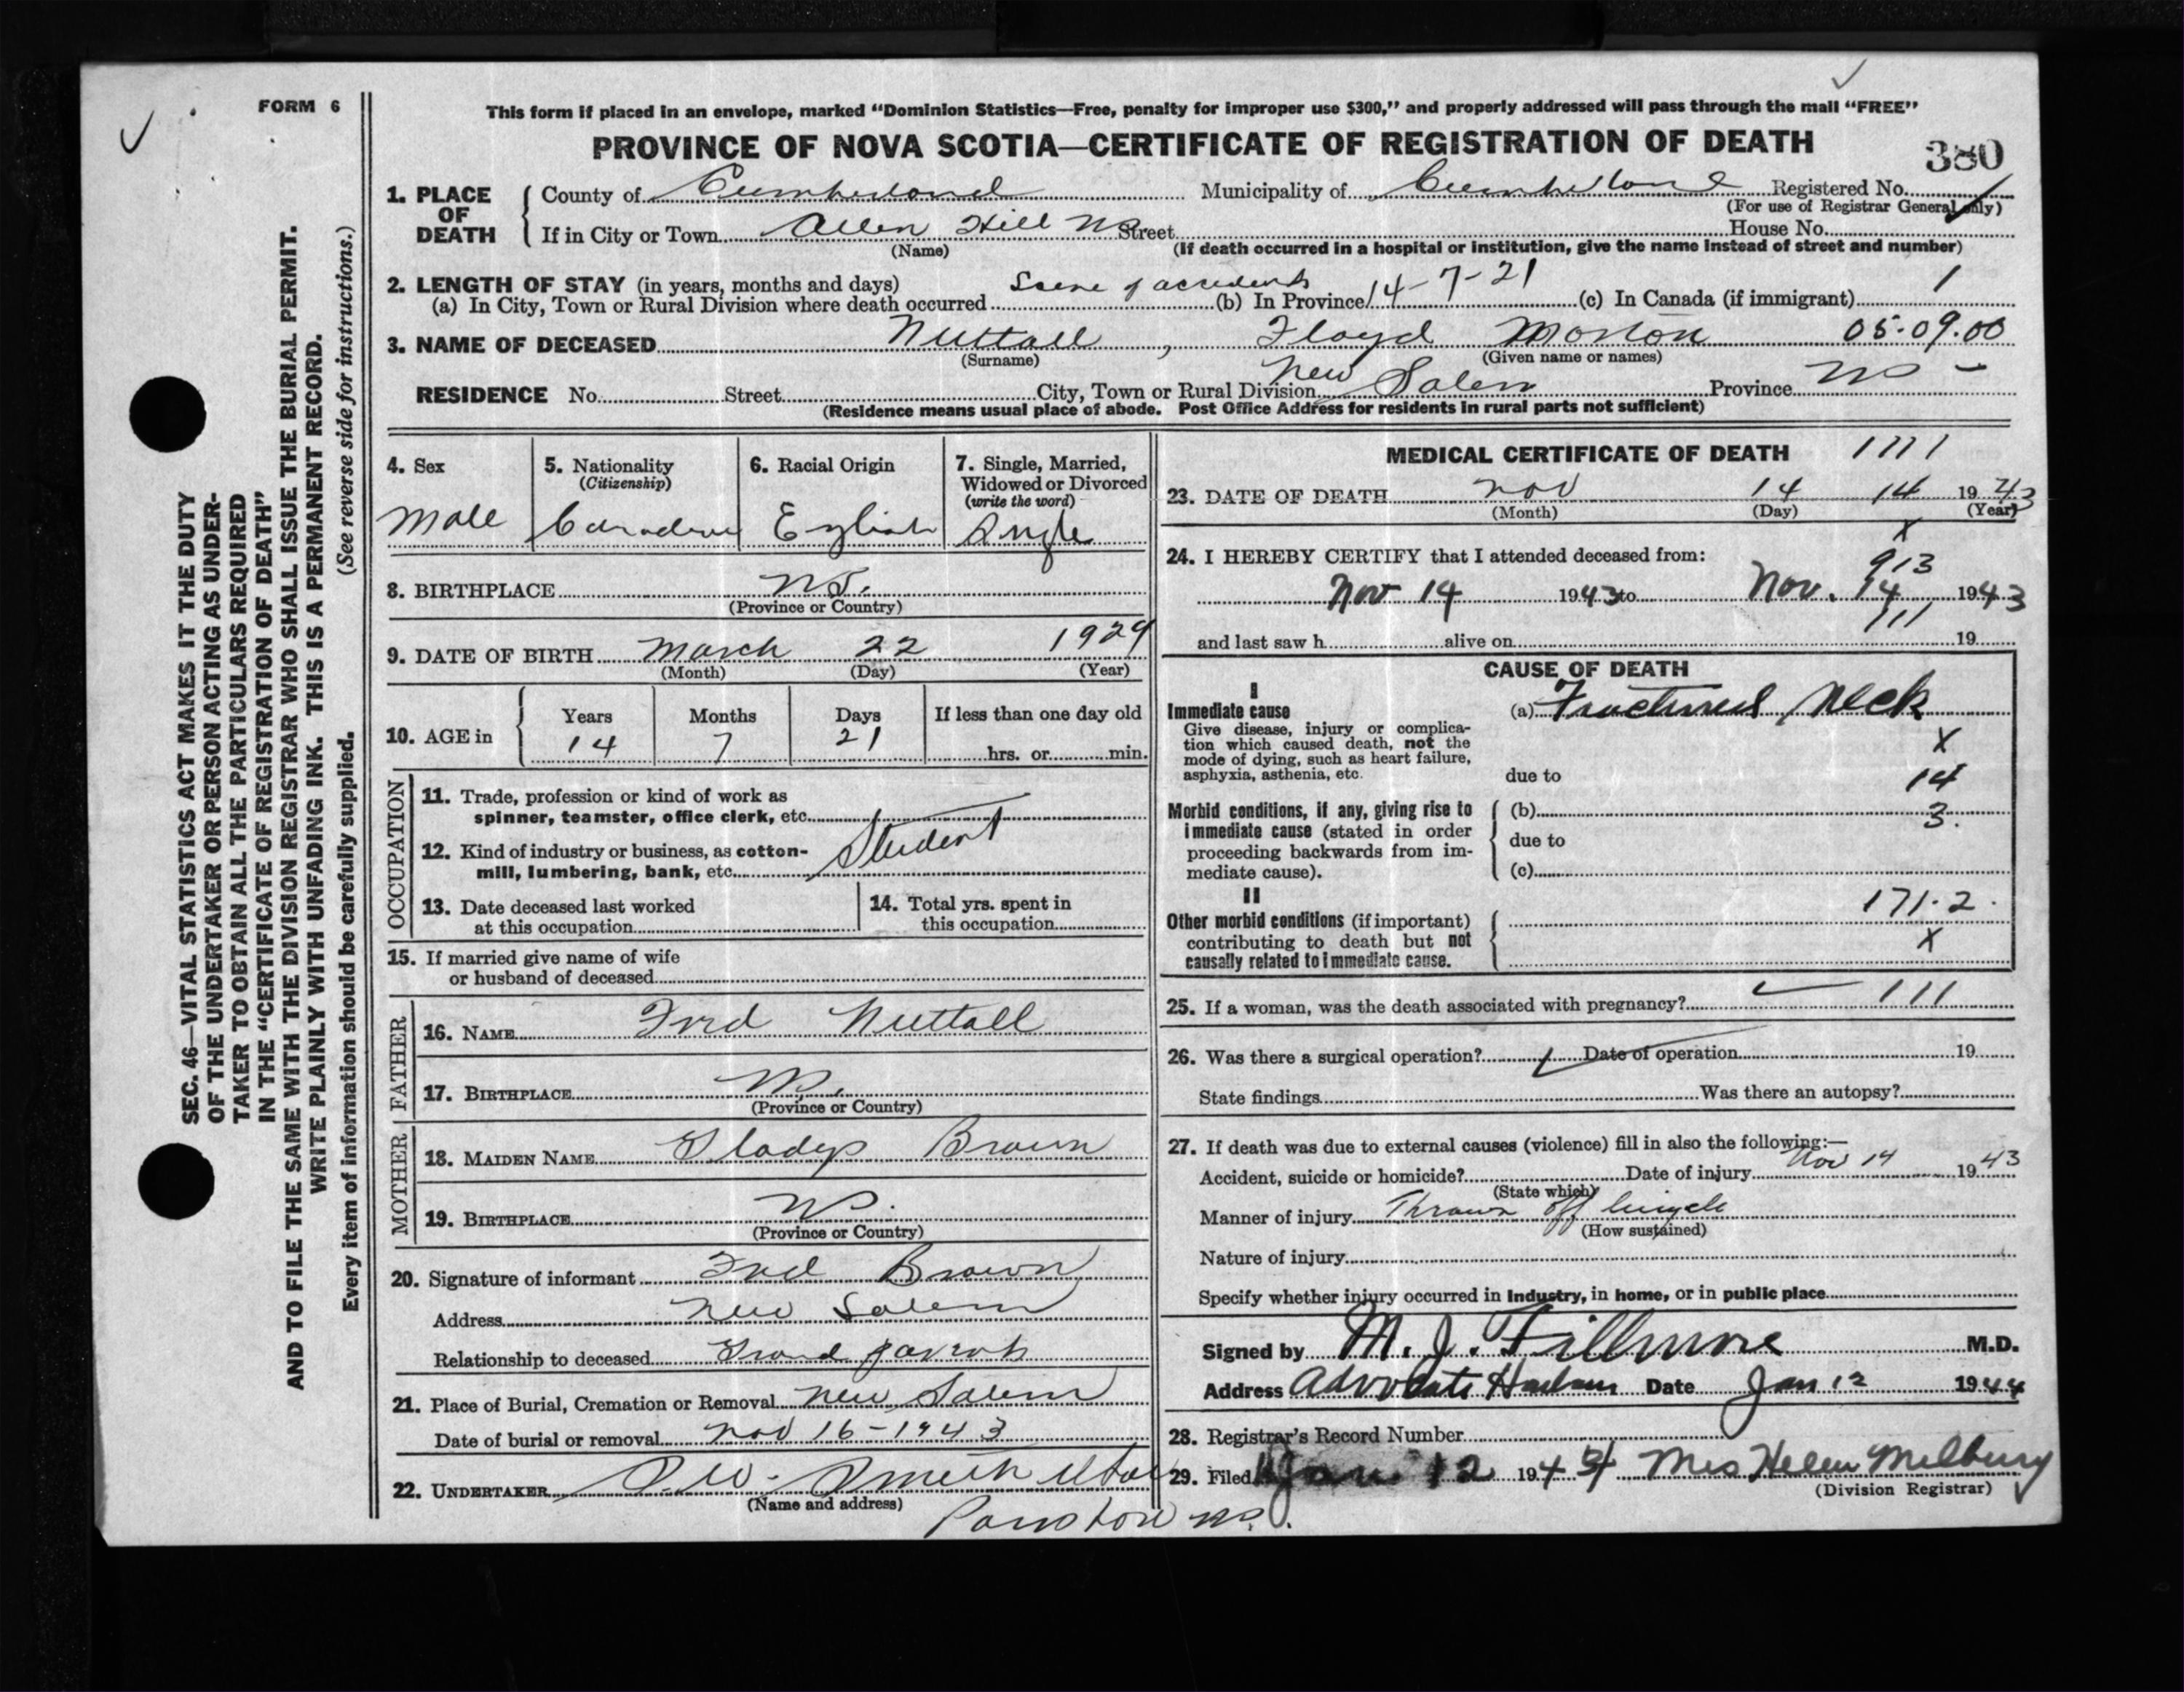 FORM 6
This form if placed in an envelope, marked “Dominion Statistics—Free, penalty for improper use $300,” and properly addressed will pass through the mail “FREE”
PROVINCE OF NOVA SCOTIA—CERTIFICATE OF REGISTRATION OF DEATH
380
1. PLACE OF DEATH
County of Cumberland Municipality of Cumberland Registered No.
(For use of Registrar General only)
If in City or Town Allen Hill NS Street House No.
(Name) (If death occurred in a hospital or institution, give the name instead of street and number)
2. LENGTH OF STAY (in years, months and days)
(a) In City, Town or Rural Division where death occurred Scene of accident (b) In Province 14-7-21 (c) In Canada (if immigrant)
3. NAME OF DECEASED Nuttall, Floyd Morton 05.09.00
(Surname) (Given name or names)
RESIDENCE No. Street City, Town or Rural Division New Salem Province NS -
(Residence means usual place of abode. Post Office Address for residents in rural parts not sufficient)
4. Sex
Male
5. Nationality
(Citizenship)
Canadian
6. Racial Origin
English
7. Single, Married,
Widowed or Divorced
(write the word)
Single
8. BIRTHPLACE N.S.
(Province or Country)
9. DATE OF BIRTH March 22 1929
(Month) (Day) (Year)
10. AGE in
Years Months Days If less than one day old
14 7 21
hrs. or min.
OCCUPATION
11. Trade, profession or kind of work as
spinner, teamster, office clerk, etc.
Student
12. Kind of industry or business, as cotton-
mill, lumbering, bank, etc.
13. Date deceased last worked
at this occupation
14. Total yrs. spent in
this occupation
15. If married give name of wife
or husband of deceased
FATHER
16. NAME Fred Nuttall
17. BIRTHPLACE NS.
(Province or Country)
MOTHER
18. MAIDEN NAME Gladys Brown
19. BIRTHPLACE NS.
(Province or Country)
20. Signature of informant Fred Brown
Address New Salem
Relationship to deceased Grand parent
21. Place of Burial, Cremation or Removal New Salem
Date of burial or removal Nov 16-1943
22. UNDERTAKER Smith
(Name and address)
NS.
MEDICAL CERTIFICATE OF DEATH 1711
23. DATE OF DEATH Nov 14 14 1943
(Month) (Day) (Year)
X
24. I HEREBY CERTIFY that I attended deceased from:
913
Nov 14 1943 to Nov. 14 1943
111
and last saw h alive on 19
CAUSE OF DEATH
I
Immediate cause
Give disease, injury or complica-
tion which caused death, not the
mode of dying, such as heart failure,
asphyxia, asthenia, etc.
(a) Fractured Neck
X
due to
14
Morbid conditions, if any, giving rise to
immediate cause (stated in order
proceeding backwards from im-
mediate cause).
(b)
3.
due to
(c)
II
Other morbid conditions (if important)
contributing to death but not
causally related to immediate cause.
171.2.
X
25. If a woman, was the death associated with pregnancy? 111
26. Was there a surgical operation? Date of operation 19
State findings Was there an autopsy?
27. If death was due to external causes (violence) fill in also the following:—
Accident, suicide or homicide? Date of injury Nov 14 1943
(State which)
Manner of injury Thrown off bicycle
(How sustained)
Nature of injury
Specify whether injury occurred in Industry, in home, or in public place
Signed by M. J. Fillmore M.D.
Address Advocate Harbour Date Jan 12 1944
28. Registrar's Record Number
29. Filed Jan 12 1944 Mrs Helen Melbury
(Division Registrar)
SEC. 46—VITAL STATISTICS ACT MAKES IT THE DUTY
OF THE UNDERTAKER OR PERSON ACTING AS UNDER-
TAKER TO OBTAIN ALL THE PARTICULARS REQUIRED
IN THE “CERTIFICATE OF REGISTRATION OF DEATH”
AND TO FILE THE SAME WITH THE DIVISION REGISTRAR WHO SHALL ISSUE THE BURIAL PERMIT.
WRITE PLAINLY WITH UNFADING INK. THIS IS A PERMANENT RECORD.
Every item of information should be carefully supplied. (See reverse side for instructions.)